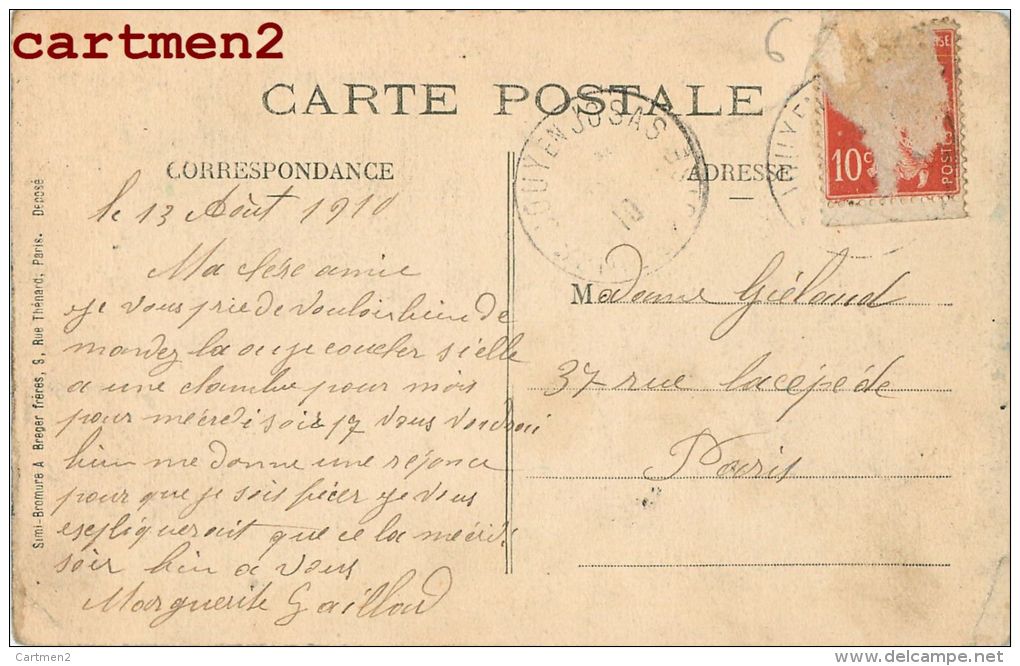 cartmen2
6
CARTE POSTALE
JOUY EN JOSAS
10
10c
POSTES
CORRESPONDANCE
ADRESSE
le 13 Aôut 1910
Ma chére amie
Je vous prie de vouloir bien de
mandez la ou je coucher si elle
a une chambre pour mois
pour mécredi soir 17 vous voudrai
bien me donne une réponce
pour que je sois fixer je vous
expliquerait que ce la mécredi
soir bien a vous
Marguerite Gaillard
Madame Giéloud
37 rue Lacépéde
Paris
Simi-Bromure A. Breger frères, 9, Rue Thénard, Paris. Déposé
Cartmen2
www.delcampe.net